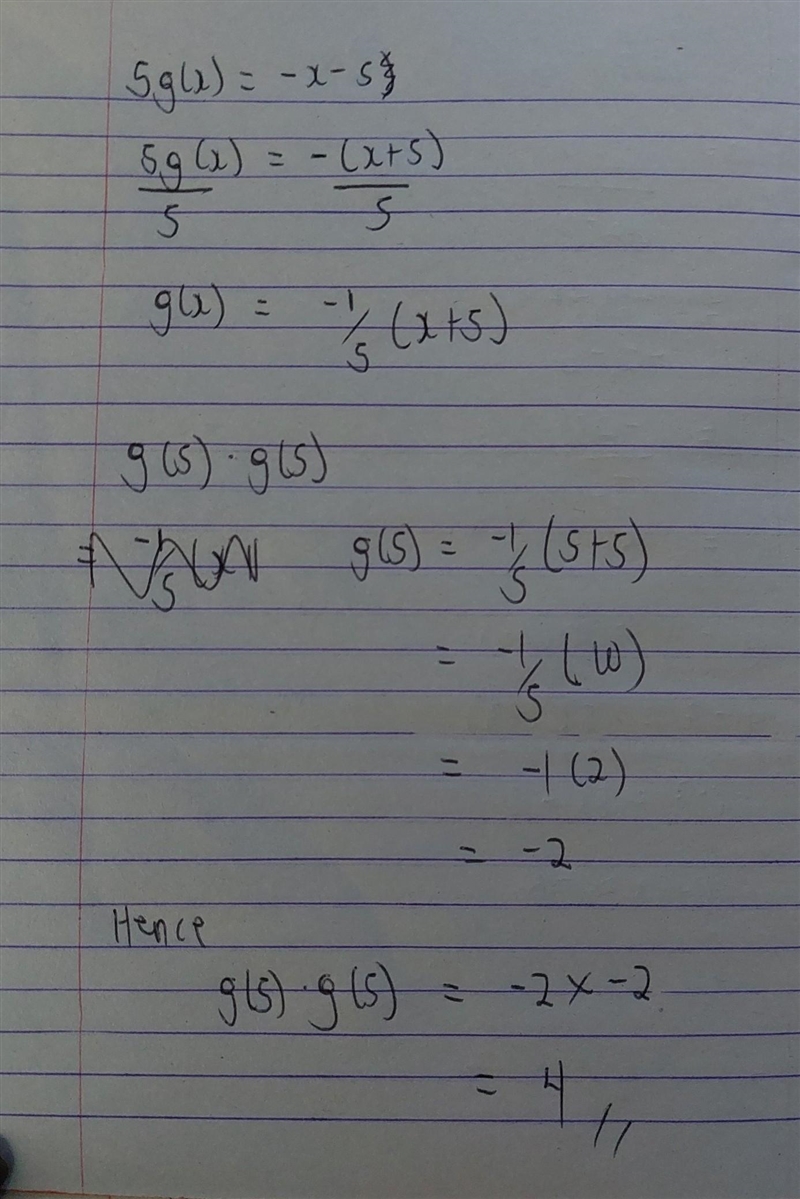 5g(x) = -x-5
5g(x) = -(x+5)
5 5
g(x) = -1/5 (x+5)
g(5) · g(5)
g(5) = -1/5 (5+5)
= -1/5 (10)
= -1(2)
= -2
Hence
g(5) · g(5) = -2 x -2
= 4 //